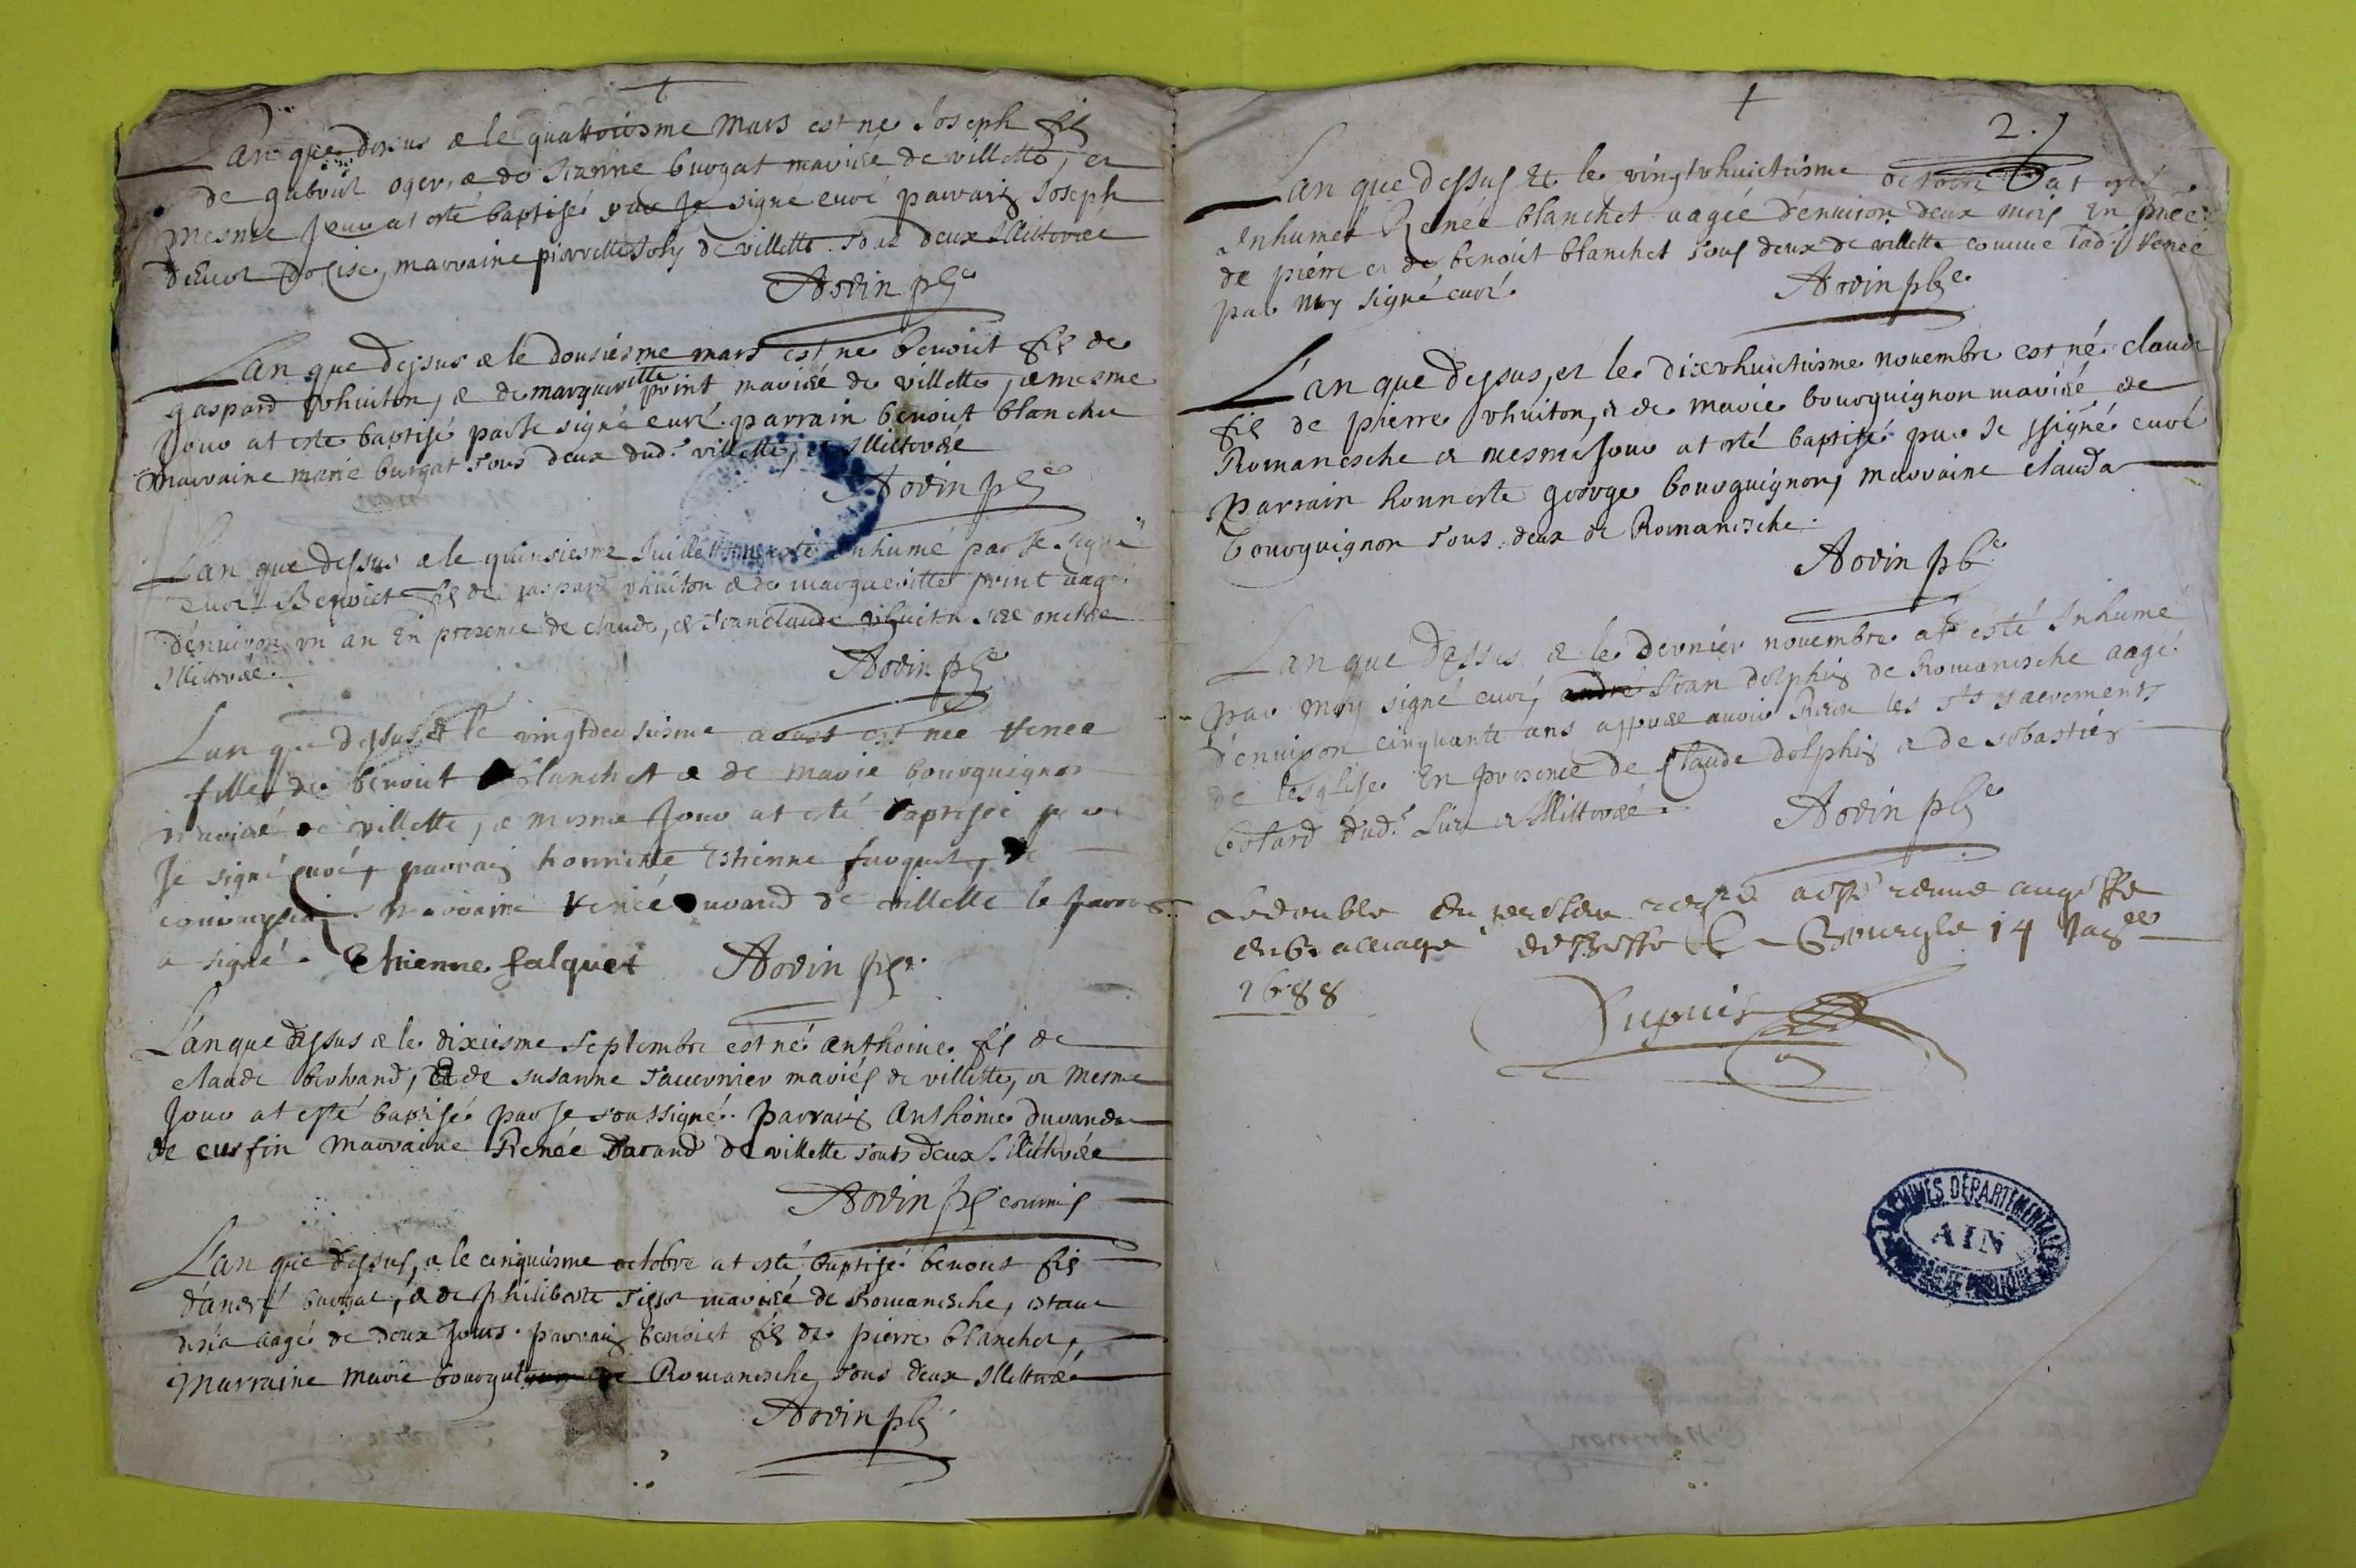 L'an que dessus & le quattriesme Mars est né Joseph fils
de gabriel oger, & de Jeanne burgat mariés de villette, et
mesme Jour at esté baptisé par Je signé curé parrain Joseph
marraine pierrette Joly de villette tous deux Illittérés
Arvin pbre
L'an que dessus & le dousiesme mars est né benoict fils de
gaspard vhuiton, & de margueritte point mariés de villette, & mesme
Jour at esté baptisé par Je signé curé parrain benoict blanchet
marraine marie burgat tous deux dud. villette, et Illittérés
Arvin pbre
L'an que dessus & le quinsiesme Juillet at esté Inhumé par Je signé
curé Benoict fils de gaspard vhuiton & de margueritte point aagé
d'enuiron vn an En presence de claude, & Jean claude vhuiton ses oncles
Illittérés.
Arvin pbre
L'an que dessus & le vingtdeusiesme aoust est née renée
fille de benoict blanchet & de marie bourguignon
mariés de villette, & mesme Jour at esté baptisée par
Je signé curé, parrain honneste Estienne
marraine renée durand de villette le parrain
a signé. Ethienne falquet Arvin pbre
L'an que dessus & le dixiesme septembre est né anthoine fils de
claude berhand, & de susanne tauernier mariés de villette, et mesme
Jour at esté baptisé par Je soussigné. parrain anthoine durand
de cusfin marraine Renée Durand de villette touts deux Illittérés
Arvin pbre commis
L'an que dessus, & le cinquiesme octobre at esté baptisé benoict fils
d'andré burgat, & de philiberte mariés de Romanesche, estant
desia aagé de deux Jours. parrain benoict fils de pierre blanchet,
Marraine marie de Romanesche, tous deux Illittérés
Arvin pbre
2.
L'an que dessus Et le vingtvhuictiesme octobre at esté
Inhumée Renée blanchet aagée d'enuiron deux mois En pnce
de pierre et de benoict blanchet tous deux de villette comme lad. renée
par moy signé curé.
Arvin pbre
L'an que dessus, et le dixvhuictiesme nouembre est né claude
fils de pierre vhuiton, & de marie bourguignon mariés de
Romanesche & mesme Jour at esté baptisé par Je ssigné curé
parrain honneste george bourguignon, marraine clauda
bourguignon tous deux de Romanesche.
Arvin pbre
L'an que dessus & le dernier nouembre at esté Inhumé
par moy signé curé, Jean dolphin de Romanesche aagé
d'enuiron cinquante ans appres auoir Receu les sts sacrements
de l'esglise. En presence de Claude dolphin & de sebastien
Cotard dud. lieu & Illittérés.
Arvin pbre
Le double du present a esté remis au greffe
du balliage de Bresse A Bourg le 14 Janvier
1688
Dupuis
ARCHIVES DÉPARTEMENTALES
AIN